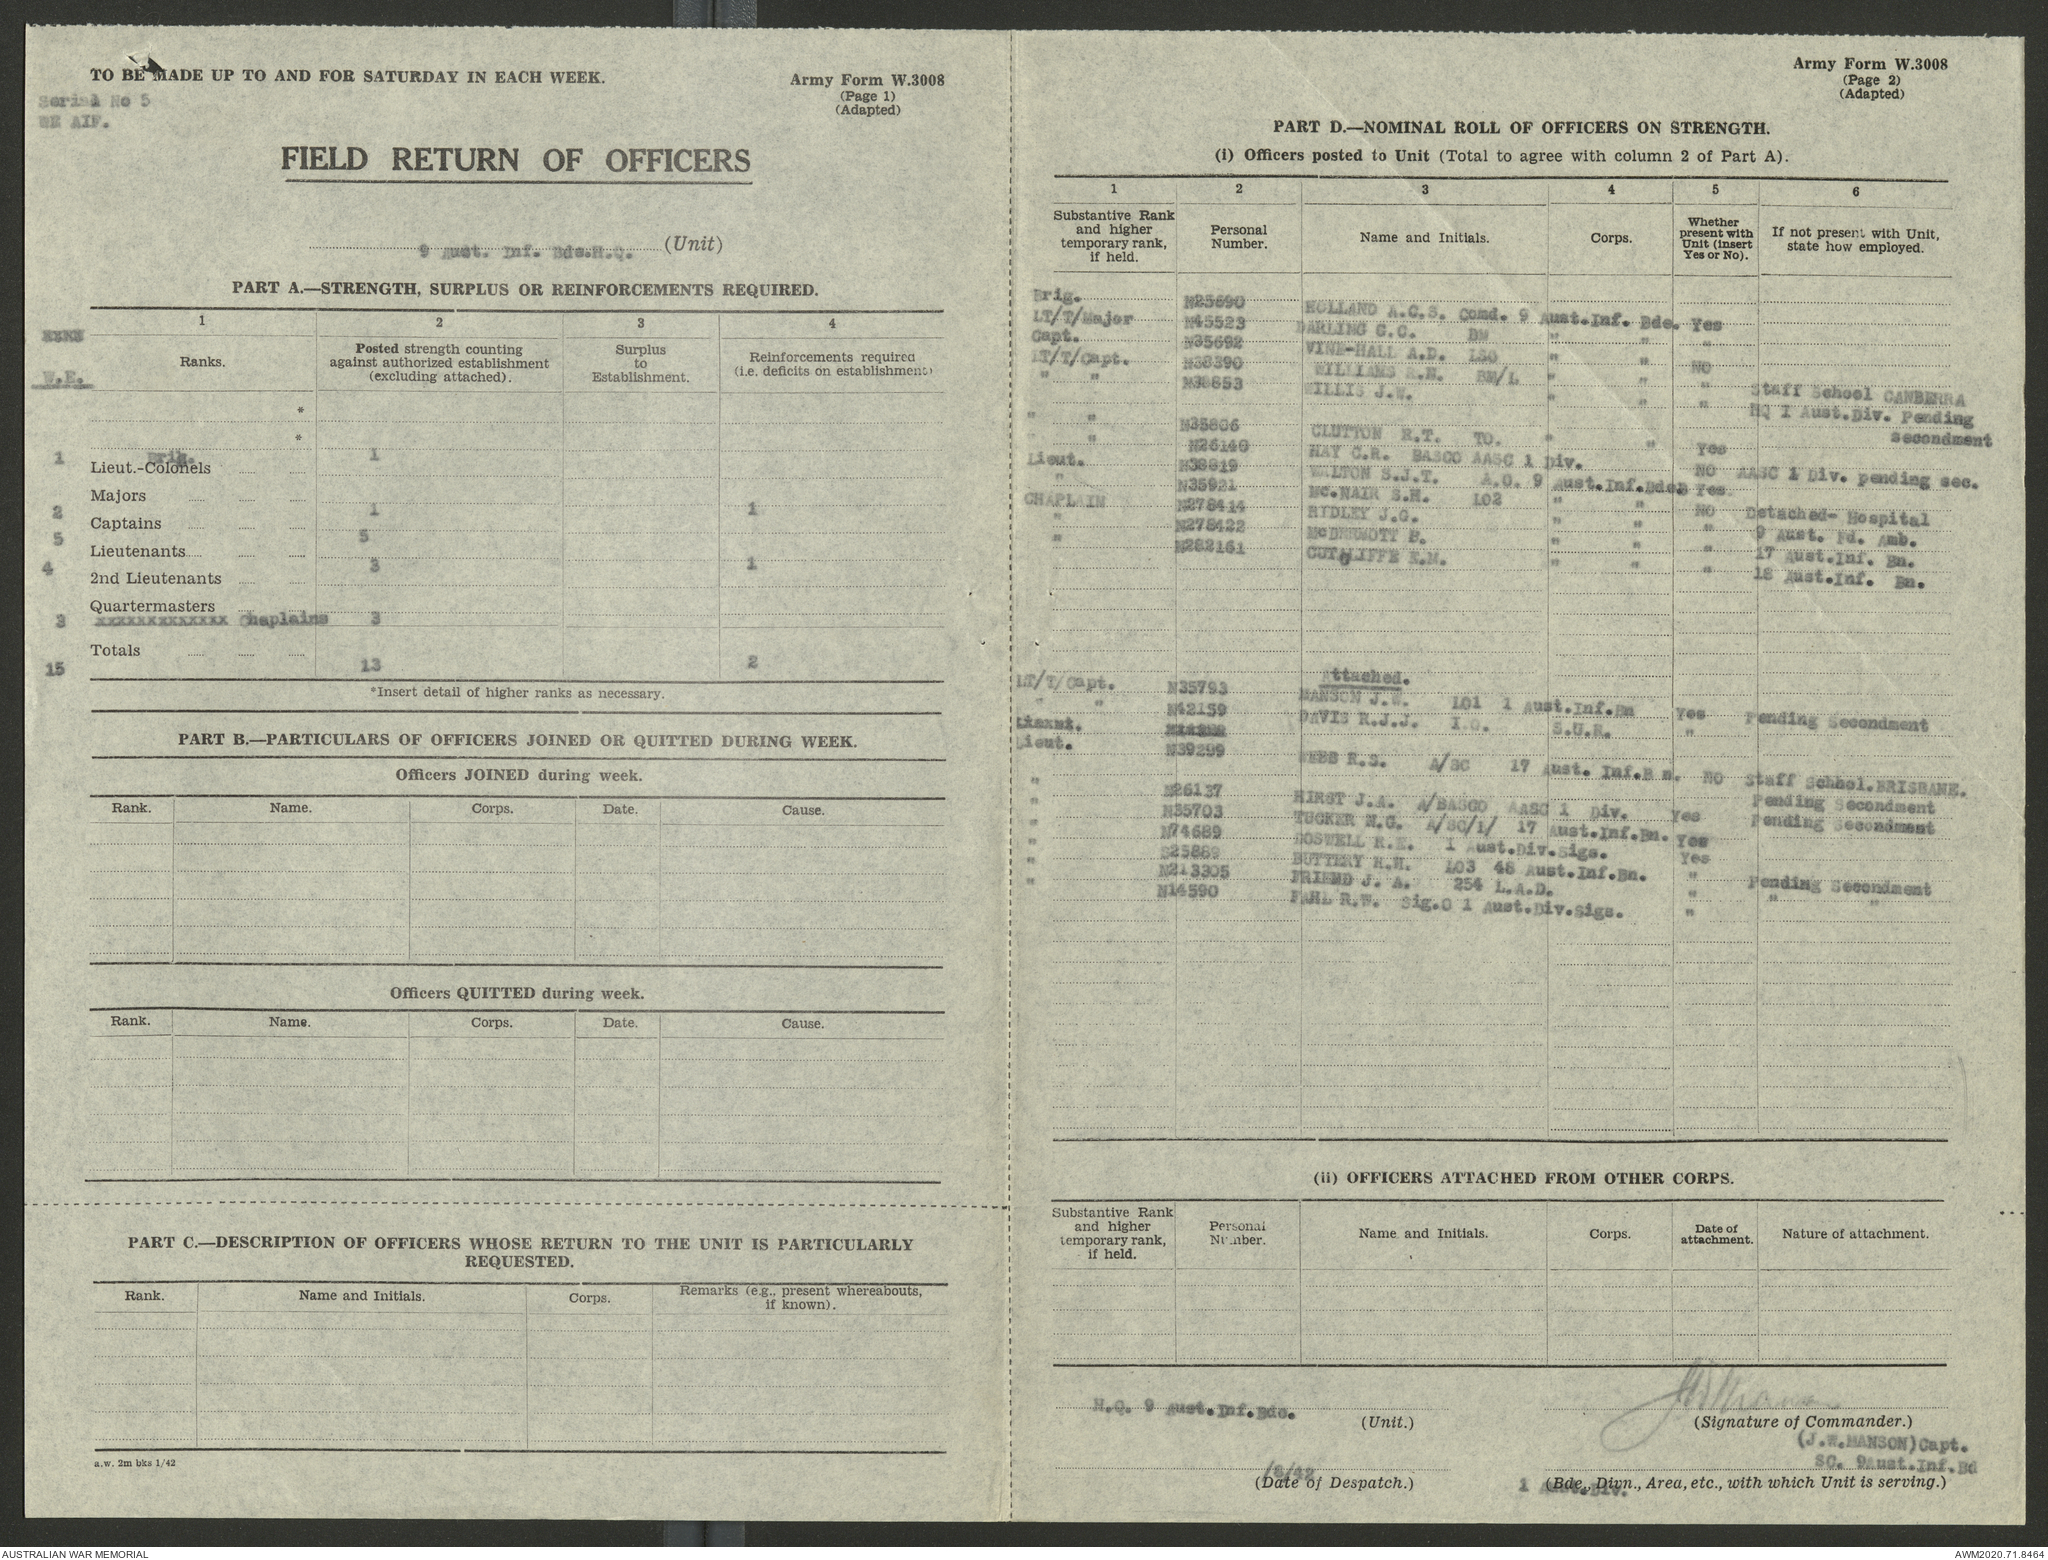 TO BE MADE UP TO AND FOR SATURDAY IN EACH WEEK.
Army Form W.3008
(Page 1)
(Adapted)
Serial No 5
WE AIF.
FIELD RETURN OF OFFICERS
9 Aust. Inf. Bde.H.Q. (Unit)
PART A.—STRENGTH, SURPLUS OR REINFORCEMENTS REQUIRED.
1 2 3 4
W.E. Ranks. Posted strength counting against authorized establishment (excluding attached). Surplus to Establishment. Reinforcements required (i.e. deficits on establishment)
*
*
1 Brig. 1
Lieut.-Colonels
Majors
2 1 1
Captains
5 5
Lieutenants
4 3 1
2nd Lieutenants
Quartermasters
3 xxxxxxxxxxxxx Chaplains 3
Totals
15 13 2
*Insert detail of higher ranks as necessary.
PART B.—PARTICULARS OF OFFICERS JOINED OR QUITTED DURING WEEK.
Officers JOINED during week.
Rank. Name. Corps. Date. Cause.
Officers QUITTED during week.
Rank. Name. Corps. Date. Cause.
PART C.—DESCRIPTION OF OFFICERS WHOSE RETURN TO THE UNIT IS PARTICULARLY
REQUESTED.
Rank. Name and Initials. Corps. Remarks (e.g., present whereabouts, if known).
a.w. 2m bks 1/42
Army Form W.3008
(Page 2)
(Adapted)
PART D.—NOMINAL ROLL OF OFFICERS ON STRENGTH.
(i) Officers posted to Unit (Total to agree with column 2 of Part A).
1 2 3 4 5 6
Substantive Rank and higher temporary rank, if held. Personal Number. Name and Initials. Corps. Whether present with Unit (insert Yes or No). If not present with Unit, state how employed.
Brig. N25690 HOLLAND A.C.S. Comd. 9 Aust.Inf. Bde. Yes
LT/T/Major N45523 DARLING C.C. BM " " "
Capt. N35692 VINE-HALL A.D. LSO " " NO Staff School CANBERRA
LT/T/Capt. N38390 WILLIAMS R.N. BM/L " " " HQ 1 Aust.Div. Pending
" " N38853 WILLIS J.W. " " " secondment
" " N35806 CLUTTON R.T. TO. " " Yes
" " N26140 HAY C.R. BASCO AASC 1 Div. NO AASC 1 Div. pending sec.
Lieut. N38819 WALTON S.J.T. A.O. 9 Aust.Inf.Bde. Yes
" N35921 Mc.NAIR S.H. LO2 " " NO Detached- Hospital
CHAPLAIN N278414 RIDLEY J.G. " " " 9 Aust. Fd. Amb.
" N278422 McDERMOTT B. " " " 17 Aust.Inf. Bn.
" N282161 CUTCLIFFE E.M. " " " 18 Aust.Inf. Bn.
Attached.
LT/T/Capt. N35793 MANSON J.W. LO1 1 Aust.Inf.Bn Yes Pending Secondment
" " N42159 DAVIS R.J.J. I.O. S.U.R. "
Lieut. N39299 WEBB R.S. A/SC 17 Aust. Inf.B n. NO Staff Schhol.BRISBANE.
" N26137 HIRST J.A. A/BASCO AASC 1 Div. Yes Pending Secondment
" N35703 TUCKER N.G. A/SC/1/ 17 Aust.Inf.Bn. Yes Pending Secondment
" N74689 BOSWELL R.E. 1 Aust.Div.Sigs. Yes
" S25889 BUTTERY H.H. LO3 48 Aust.Inf.Bn. " Pending Secondment
" N213305 FRIEND J. A. 254 L.A.D. " " "
" N14590 FAHL R.W. Sig.O 1 Aust.Div.Sigs. "
(ii) OFFICERS ATTACHED FROM OTHER CORPS.
Substantive Rank and higher temporary rank, if held. Personal Number. Name and Initials. Corps. Date of attachment. Nature of attachment.
H.Q. 9 Aust.Inf.Bde. (Unit.)
(Signature of Commander.)
(J.W.MANSON)Capt.
SC. 9Aust.Inf.Bd
/8/42
(Date of Despatch.)
1 Aust.Div.
(Bde., Divn., Area, etc., with which Unit is serving.)
AUSTRALIAN WAR MEMORIAL
AWM2020.71.8464